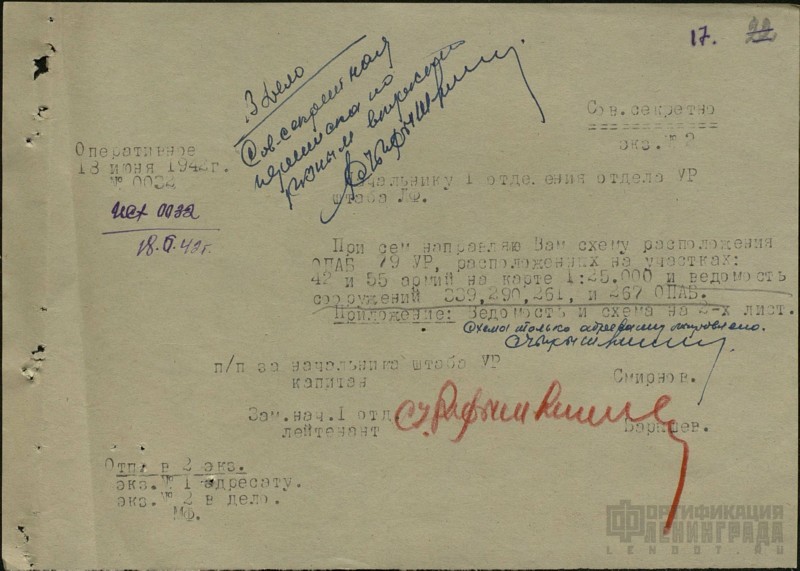 17. 22
В дело
Сов. секретная
переписка по
Сов.секретно
экз.№ 2
Оперативное
18 июня 1942г.
№ 0032
исх 0032
18.VI.42г.
Начальнику 1 отделения отдела УР
штаба ЛФ.
При сем направляю Вам схему расположения
ОПАБ 79 УР, расположенных на участках:
42 и 55 армий на карте 1:25.000 и ведомость
сооружений 339,290,261, и 267 ОПАБ.
Приложение: Ведомость и схема на 2-х лист.
Схема только
п/п за начальника штаба УР
капитан Смирнов.
Зам.нач.1 отд
лейтенант Барышев.
Отп. в 2 экз.
экз.№ 1 адресату.
экз.№ 2 в дело.
МФ.
ФОРТИФИКАЦИЯ
ЛЕНИНГРАДА
LENDOT.RU